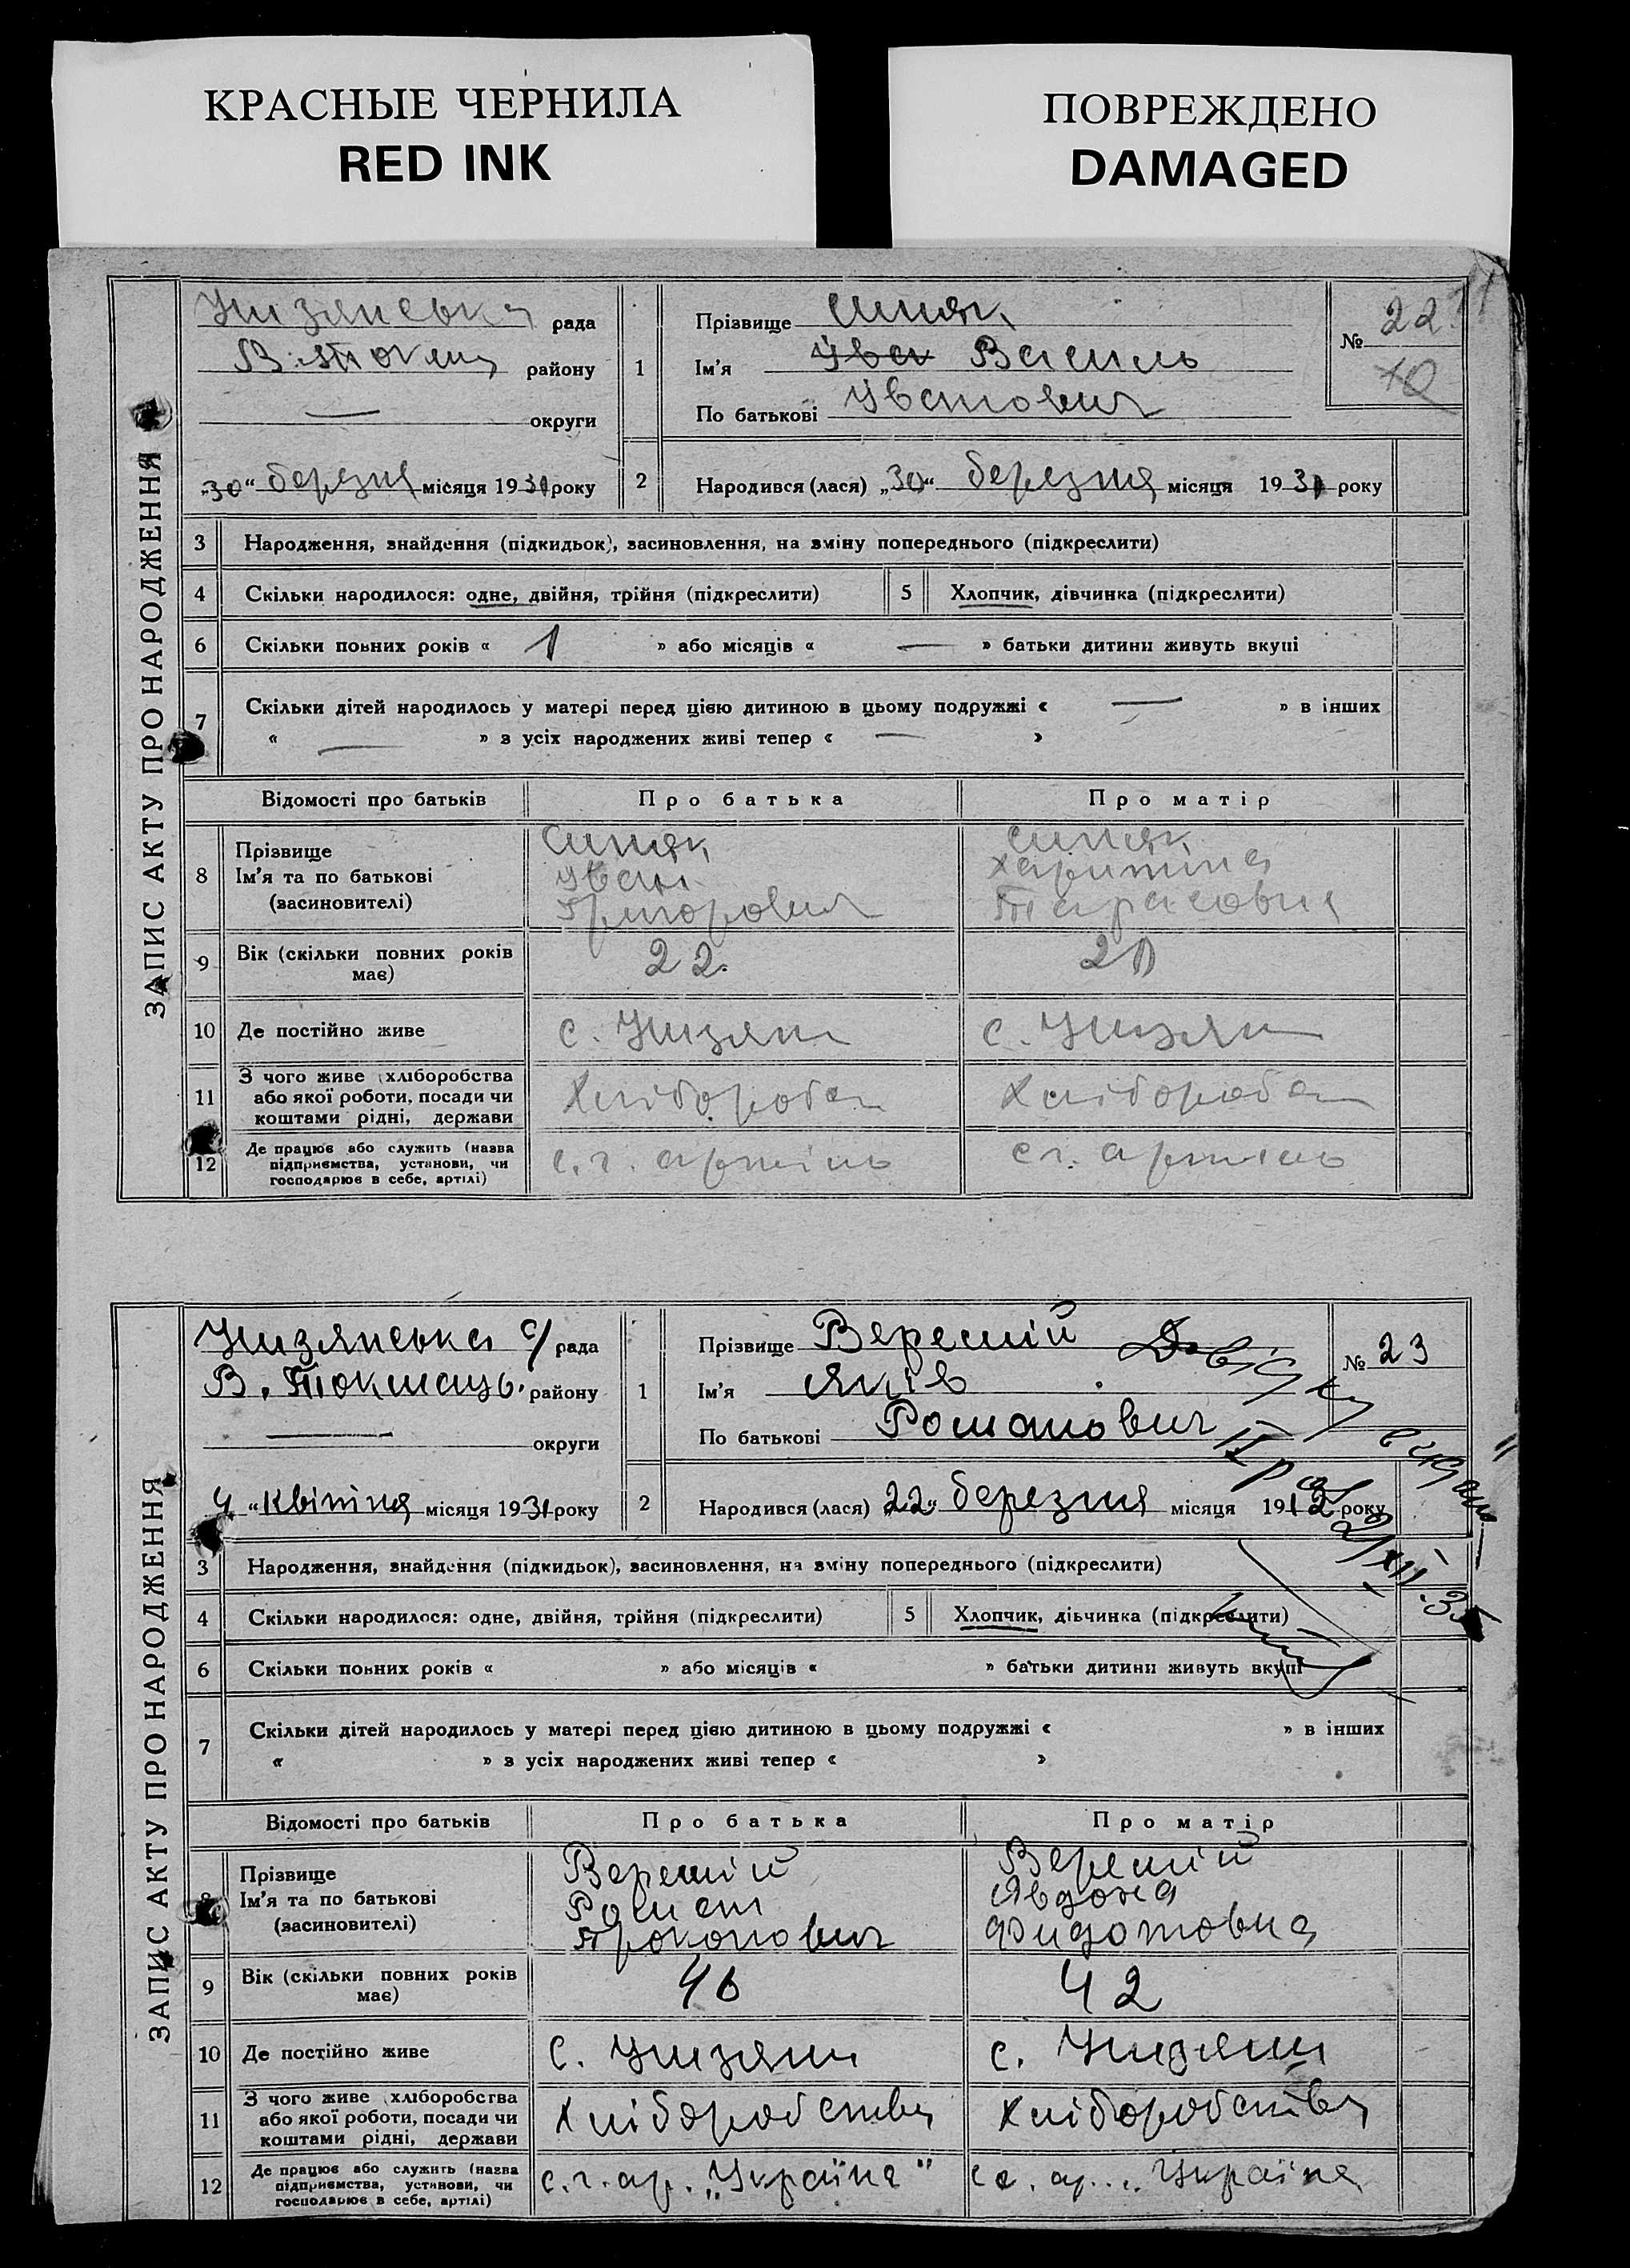 КРАСНЫЕ ЧЕРНИЛА
RED INK
ПОВРЕЖДЕНО
DAMAGED
ЗАПИС АКТУ ПРО НАРОДЖЕННЯ
рада
району
округи
„30“ березня місяця 1931 року
1
Прізвище Синяк
Ім'я Іван Василь
По батькові Іванович
№ 22
2
Народився (лася) „30“ березня місяця 1931 року
3 Народження, знайдення (підкидьок), засиновлення, на зміну попереднього (підкреслити)
4 Скільки народилося: одне, двійня, трійня (підкреслити)
5 Хлопчик, дівчинка (підкреслити)
6 Скільки повних років « 1 » або місяців « — » батьки дитини живуть вкупі
7 Скільки дітей народилось у матері перед цією дитиною в цьому подружжі « — » в інших
« — » з усіх народжених живі тепер « — »
Відомості про батьків Про батька Про матір
8 Прізвище Синяк Синяк
Ім'я та по батькові Іван Харитина
(засиновителі) Григорович Тарасовна
9 Вік (скільки повних років має) 22. 20
10 Де постійно живе с. Низяни с. Низяни
11 З чого живе (хліборобства або якої роботи, посади чи коштами рідні, держави Хлібороб Хлібороб
12 Де працює або служить (назва підприємства, установи, чи господарює в себе, артілі) с.г. артіль с.г. артіль
ЗАПИС АКТУ ПРО НАРОДЖЕННЯ
Низянська с/рада
В. Токмаць. району
— округи
4 “ квітня місяця 1931 року
1
Прізвище Веремій
Ім'я Яків
По батькові Романович
№ 23
2
Народився (лася) „22“ березня місяця 1912 року
Довідку
видано
3 Народження, знайдення (підкидьок), засиновлення, на зміну попереднього (підкреслити)
4 Скільки народилося: одне, двійня, трійня (підкреслити)
5 Хлопчик, дівчинка (підкреслити)
6 Скільки повних років « » або місяців « » батьки дитини живуть вкупі
7 Скільки дітей народилось у матері перед цією дитиною в цьому подружжі « » в інших
« » з усіх народжених живі тепер « »
Відомості про батьків Про батька Про матір
8 Прізвище Веремій Веремій
Ім'я та по батькові Роман Явдоха
(засиновителі) Прокопович Фидотовна
9 Вік (скільки повних років має) 46 42
10 Де постійно живе с. Низяни с. Низяни
11 З чого живе (хліборобства або якої роботи, посади чи коштами рідні, держави Хліборобства Хліборобства
12 Де працює або служить (назва підприємства, установи, чи господарює в себе, артілі) с.г. ар. „Україна“ с.г. ар. „Україна